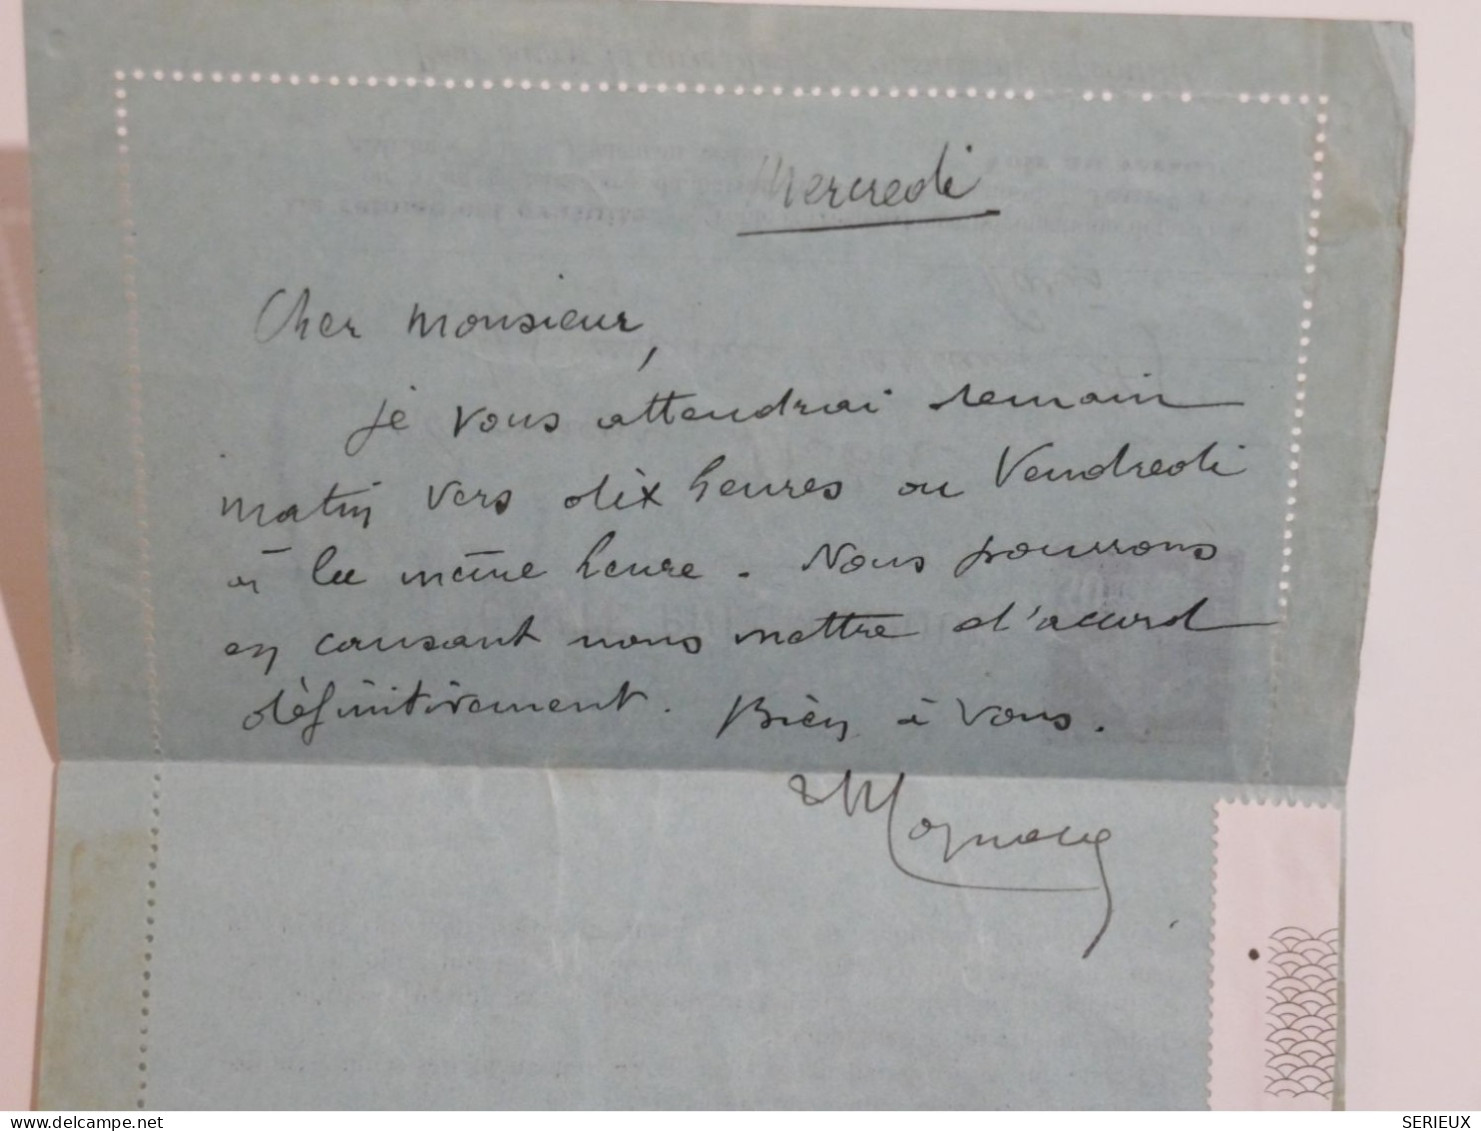 Mercredi
Cher Monsieur,
je vous attendrai demain
matin vers dix heures ou Vendredi
à la même heure. Nous pourrons
en causant nous mettre d'accord
définitivement. Bien à vous.
delcampe.net
SERIEUX